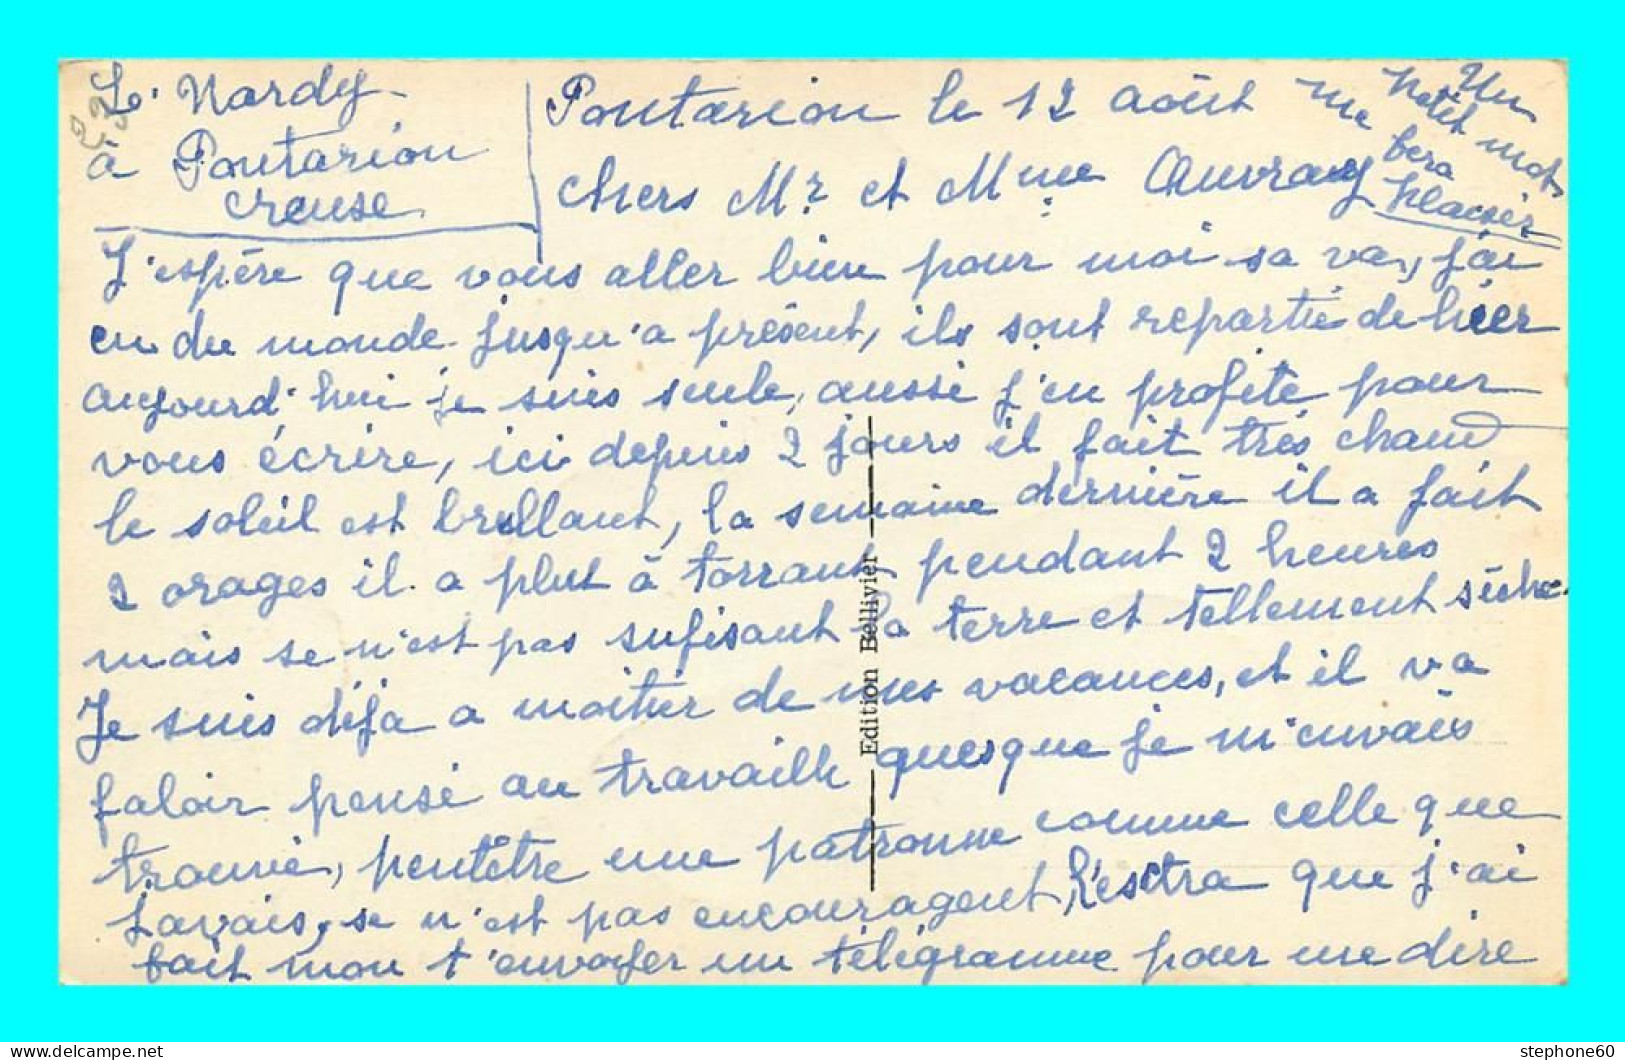 L. Nardy
à Pontarion
Creuse
Pontarion le 12 août
Un
petit mot
me fera
plaisir
chers Mr. et Mme Auvray
J'espère que vous aller bien pour moi sa va, j'ai
eu du monde jusqu'a présent, ils sont repartie de hier
aujourd'hui je suis seule, aussi j'en profite pour
vous écrire, ici depuis 2 jours il fait très chaud
le soleil est brillant, la semaine dernière il a fait
2 orages il a plut à torrant pendant 2 heures
mais se n'est pas sufisant la terre et tellement sèche.
Je suis déja a moitier de mes vacances, et il va
faloir pensé au travaille quesque je m'envais
trouvé, peutêtre une patronne comme celle que
javais, se n'est pas encouragent, l'esctra que j'ai
fait mon t'envoyer un télégramme pour me dire
Edition Bellivier
stephone60